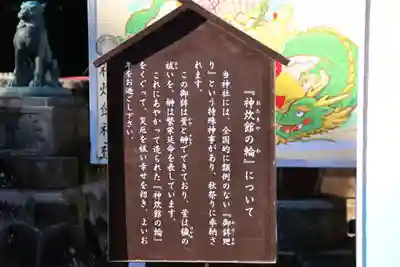 『神炊館の輪』について
当神社には、全国的に類例のない『御鉾廻
り』という特殊神事があり、秋祭りに奉納さ
れます。
この御鉾は萱と榊でできており、萱は穢の
祓いを、榊は繁栄延命を表しています。
これにあやかって造られた『神炊館の輪』
をくぐって、災厄を祓い幸せを招き、よいお
年をお過ごし下さい。
神炊館神社